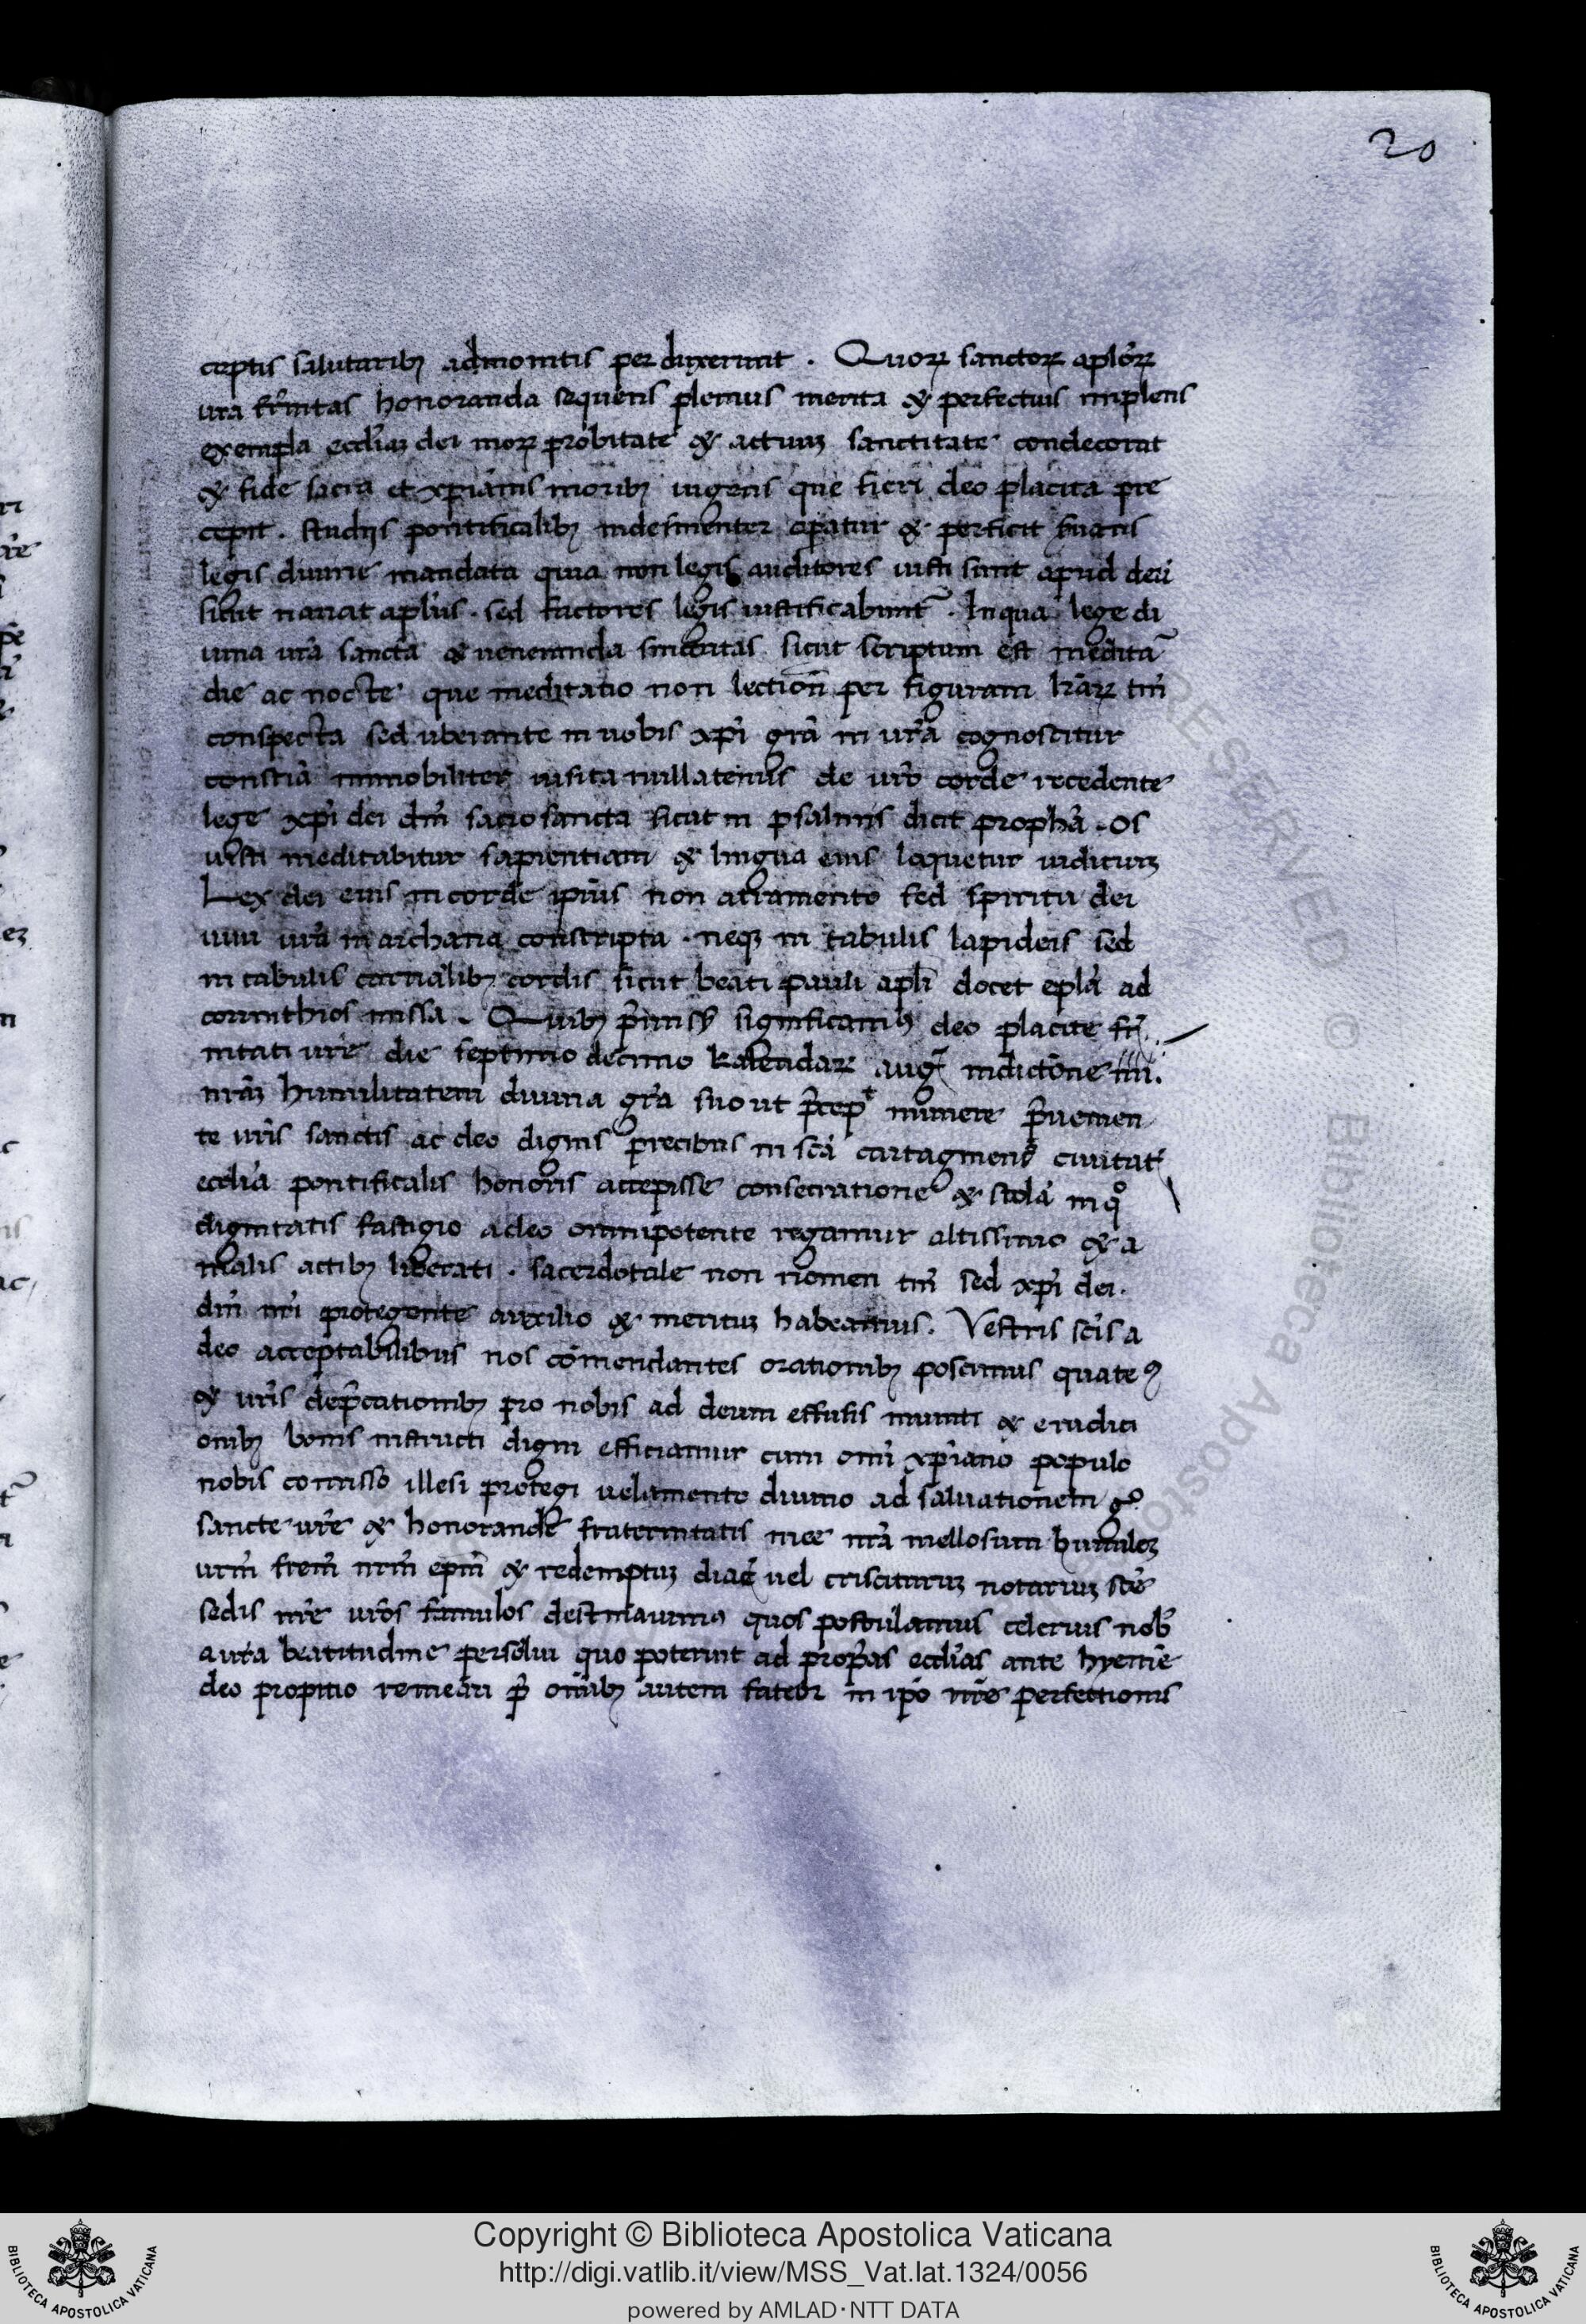 20
ceptis salutaribȝ admonitis perduxerunt . Quoꝝ sanctoꝝ aploꝝ
ura frnitas honoranda sequens plenius merita & perfectius implens
exempla eccliaȝ dei moꝝ probitate & actuuȝ sanctitate condecorat
& fide sacra et xpianis moribȝ uigens que fieri deo placita pre
cepit . studijs pontificalibȝ indesinenter operatur & perficit
legis diuine mandata quia non legis auditores iusti sunt apud deū
sicut narrat aplus . sed factores legis iustificabunt~ . In qua lege di
uina ura sancta & ueneranda sinceritas sicut scriptum est medita~
die ac nocte que meditatio non lection per figuram lraꝝ tm
conspecta sed uberante in uobis xpi gra in ura cognoscitur
conscia immobiliter insita nullatenus de uro corde recedente
lege xpi dei dni sacrosancta sicut in psalmis dicit propha . Os
iusti meditabitur sapientiam & lingua eius loquetur iudiciuȝ
Lex dei eius in corde ipsius non atramento sed spiritu dei
uiui ura in archana conscripta . neqȝ in tabulis lapideis sed
in tabulis carnalibȝ cordis sicut beati pauli apli docet epla ad
corinthios missa . Quibȝ significamus deo placite fr̄
nitati ure die septimo decimo kalendaꝝ aug indictione iiii.
nraȝ humilitatem diuina gra suo ut munere puenien
te uris sanctis ac deo dignis precibus in sca cartaginens ciuitat
ecclia pontificalis honoris accepisse consecratione & stola in q°
dignitatis fastigio a deo omnipotente regamur altissimo & a
malis actibȝ liberati . sacerdotale non nomen tm sed xpi dei .
dni nri protegente auxilio & merituȝ habeamus . Vestris scis a
deo acceptabilibus nos comendantes orationibȝ poscimus quate9
& uris depcationibȝ pro nobis ad deum effusis muniti & erudici
onibȝ bonis instructi digni efficiamur cum omi xpiano populo
nobis comisso illesi protegi uelamento diuino ad saluationem g°
sancte ure & honorande fraternitatis nra mellosum humileȝ
urm frem nrm epm & redemptuȝ diac uel crisciturus notariuȝ sce
sedis nre uros famulos destinauim9 quos postulamus celerius nob
a ura beatitudine persolui quo poterint ad proprias ecclias ante hyemē
deo propitio remeari p onibȝ autem fateor in ipo nre perfectionis
Copyright © Biblioteca Apostolica Vaticana
http://digi.vatlib.it/view/MSS_Vat.lat.1324/0056
powered by AMLAD·NTT DATA
BIBLIOTECA APOSTOLICA VATICANA
BIBLIOTECA APOSTOLICA VATICANA